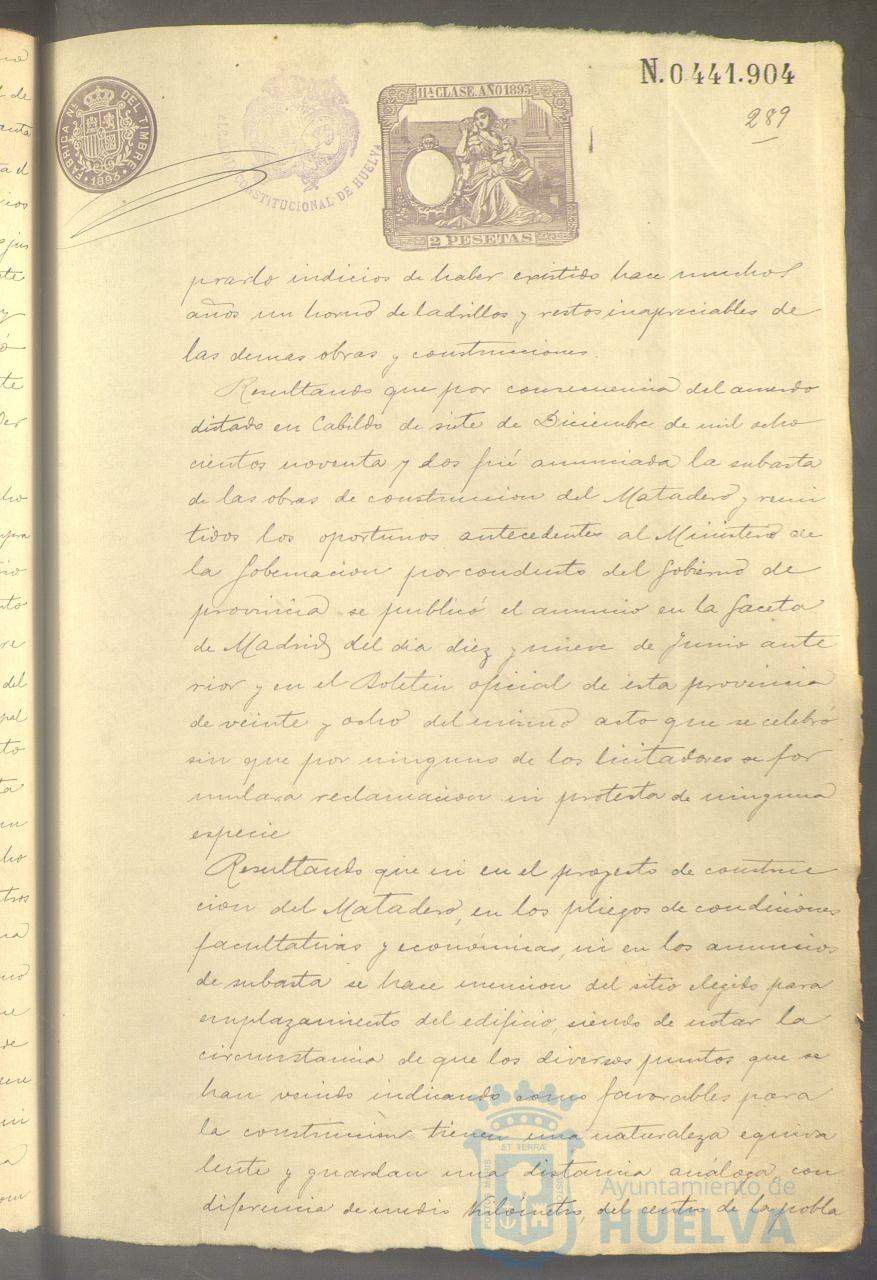 N.0.441.904
289
FABRICA NL. DEL TIMBRE
1893
CONSTITUCIONAL DE HUELVA
11ª CLASE. AÑO 1893
2 PESETAS
prado indicios de haber existido hace muchos
años un horno de ladrillos y restos inapreciables de
las demas obras y construcciones.
Resultando que por consecuencia del acuerdo
dictado en Cabildo de siete de Diciembre de mil ocho
cientos noventa y dos fué anunciada la subasta
de las obras de construccion del Matadero, y remi
tidos los oportunos antecedentes al Ministerio de
la Gobernacion por conducto del Gobierno de
provincia se publicó el anuncio en la Gaceta
de Madrid del dia diez y nueve de Junio ante
rior y en el Boletin oficial de esta provincia
de veinte y ocho del mismo acto que se celebró
sin que por ninguno de los licitadores se for
mulara reclamacion ni protesta de ninguna
especie
Resultando que ni en el proyecto de construc
cion del Matadero, en los pliegos de condiciones
facultativas y económicas, ni en los anuncios
de subasta se hace mencion del sitio elegido para
emplazamiento del edificio, siendo de notar la
circunstancia de que los diversos puntos que se
han venido indicando como favorables para
la construccion tienen una naturaleza equiva
lente y guardan una distancia análoga, con
diferencia de medio kilómetro, del centro de la pobla
ET TERRÆ
PORTUS MARIS
CUSTODIA
Ayuntamiento de
HUELVA